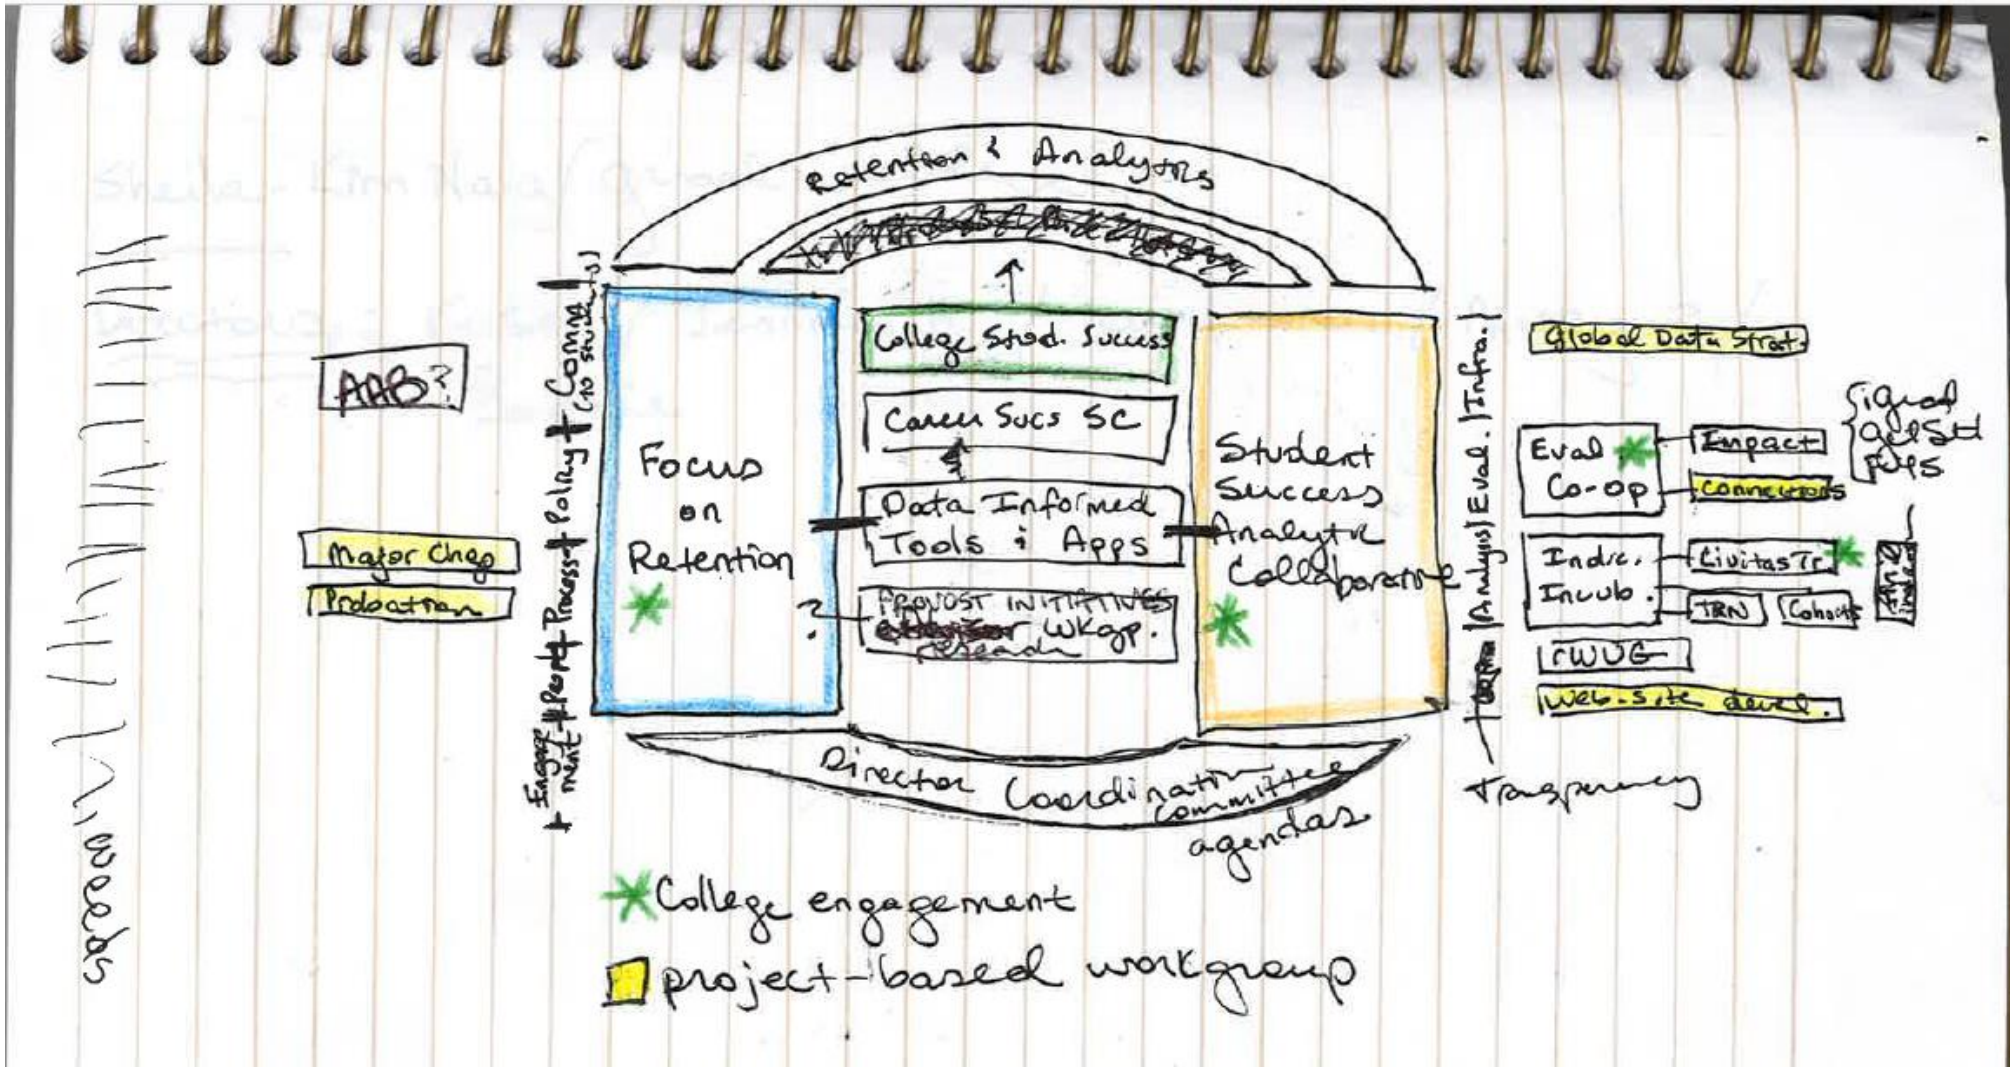 Retention & Analytics
College Stud. Success
Career Sucs SC
Data Informed
Tools & Apps
PROVOST INITIATIVES
WKgp.
research
?
Focus
on
Retention
Student
Success
Analytic
Collaborative
Director Coordination
Committee
agendas
AAB?
Major Chag
Probation
Engage
ment
People
Process
Policy
Comm
(to students)
Infra.
Eval.
Analysis
Transparency
Global Data Strat.
Eval
Co-op
Impact
Connections
Signal
Indic.
Incub.
Civitas Tr.
TRN
Cohorts
rWUG
Web-site devel.
College engagement
project-based workgroup
weeds